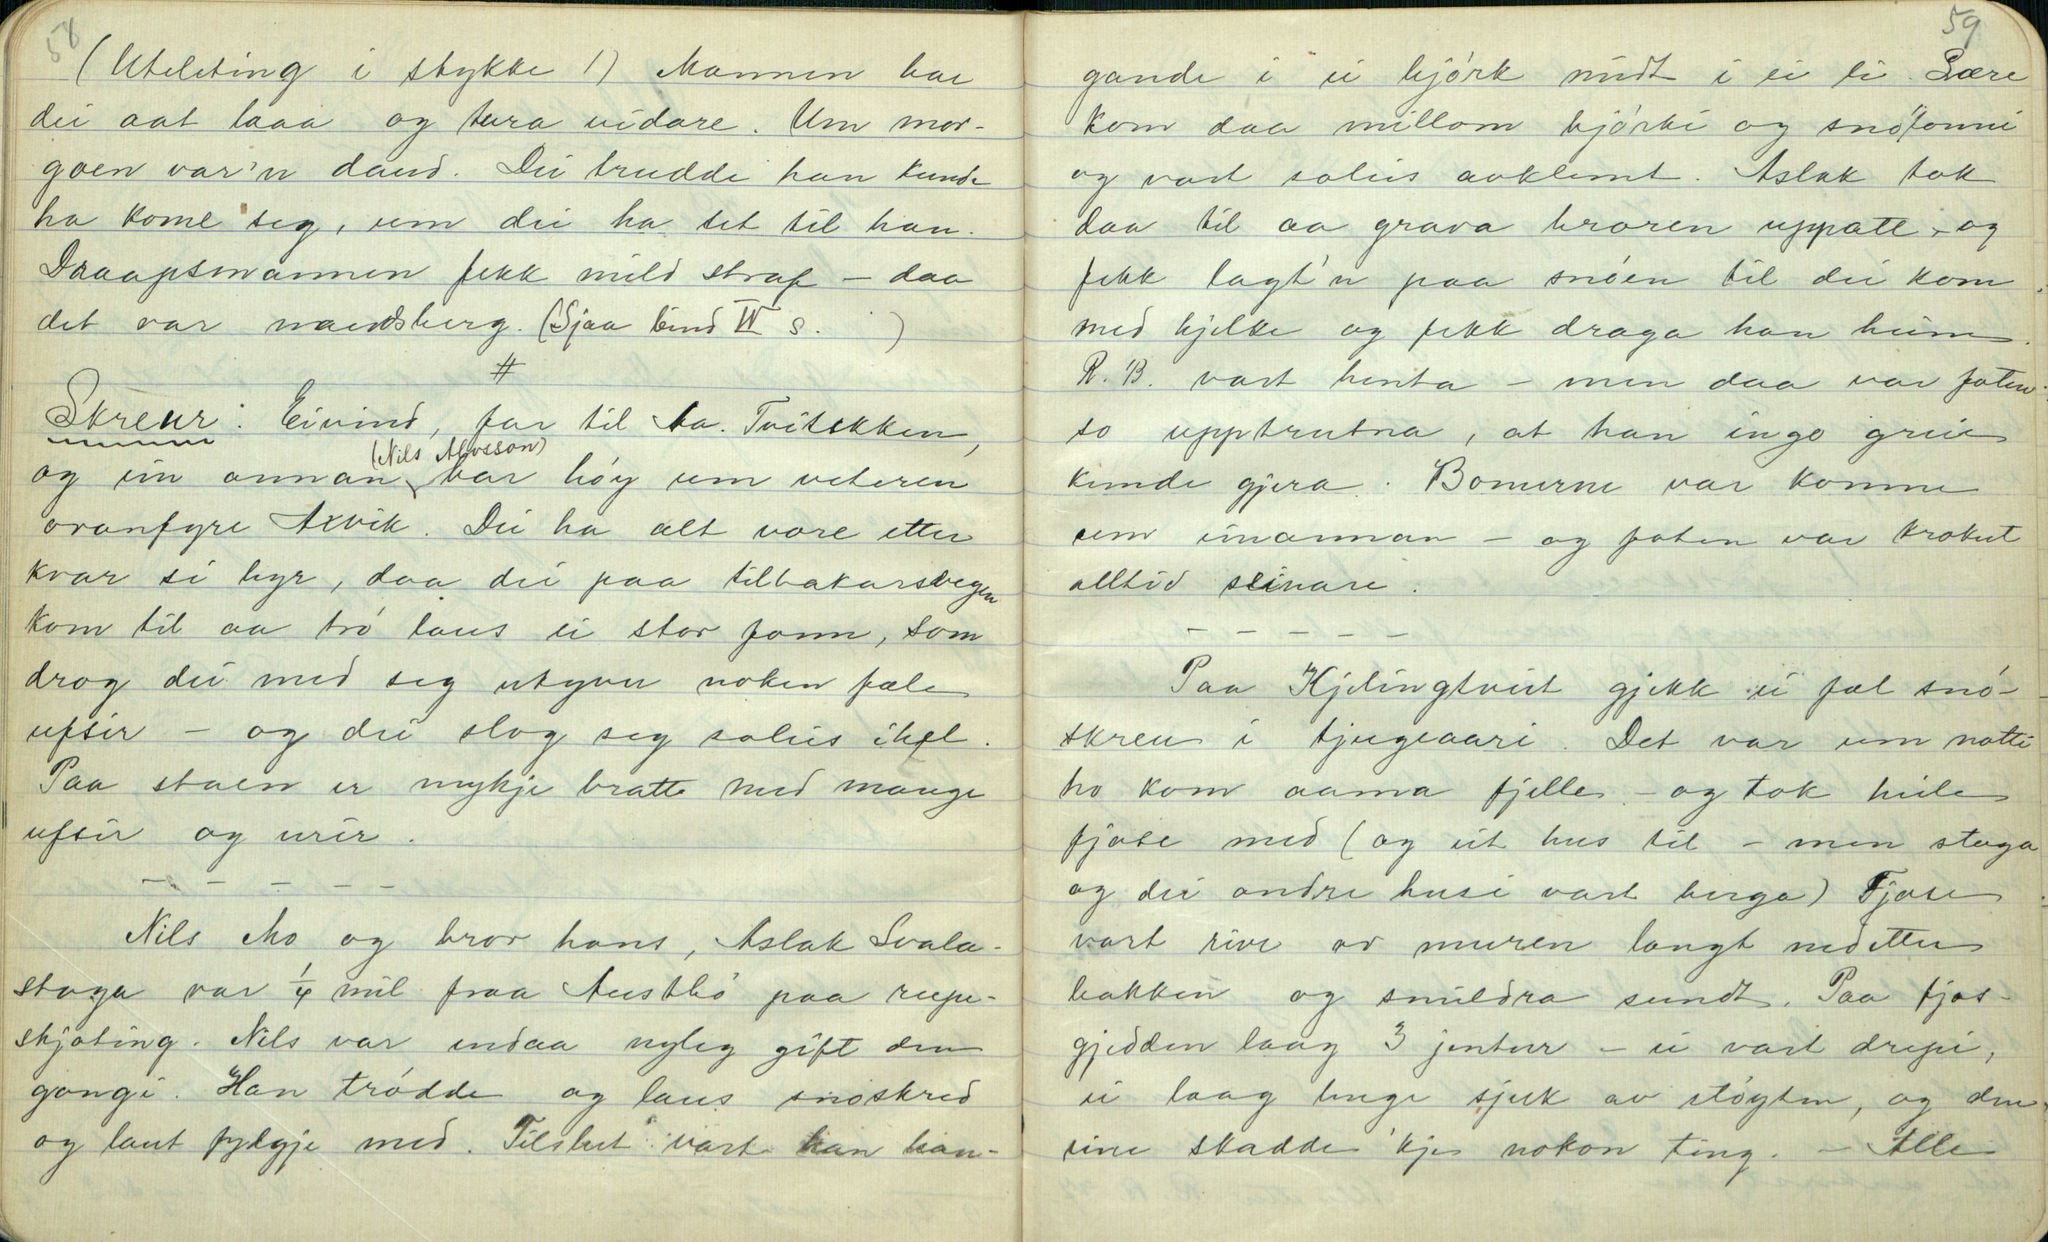 58
(Uteleting i stykke!) Mannen bar
dei aat laaa og tura vidare. Um mor-
goen var'n daud. Dei trudde han kunde
ha kome seg, um dei ha set til han.
Draapsmannen fekk mild straf - daa
det var naudsberg. (Sjaa bind IV s. )
#
Skreur: Eivind, far til Aa. Tveitekken,
og ein annan (Nils Alvsson) bar höy um veteren
ovanfyre Axvik. Dei ha alt vore etter
kvar si byr, daa dei paa tilbakarsvegen
kom til aa trö laus ei stor fonn, som
drog dei med seg utyver noken fæle
ufsir - og dei slog seg soleis ihel.
Paa staen er mykje bratte med mange
ufsir og urir.
- - - - -
Nils Mo og bror hans, Aslak Svala-
stoga var 1/4 mil fraa Austbö paa rupe-
skjoting. Nils var endaa nyleg gift den
gongi. Han trödde og laus snöskred
og laut fylgje med. Tilslut vart han han-
59
gande i ei björk midt i ei li. Lære
kom daa millom björki og snöfonni
og vart soleis avklemt. Aslak tok
daa til aa grava broren uppatt, og
fekk lagt'n paa snöen til dei kom
med kjelke og fekk draga han heim.
R. B. vart henta - men daa var foten
so upptrutna, at han inga greie
kunde gjera. Bonurne var komne
um einannan - og foten var krokut
alltid seinare.
- - - - -
Paa Kjelingtveit gjekk ei fæl snö-
skreu i tjugeaari. Det var um notti
ho kom aama fjelle - og tok heile
fjose med (og eit hus til - men stoga
og dei andre husi vart berga) Fjose
vart rive av muren langt nedetter
bakken og smildra sundt. Paa fjos-
gjedden laag 3 jentur - ei vart drepi,
ei laag lenge sjuk av støyten, og den
eine skadde 'kje nokon ting. - Alle